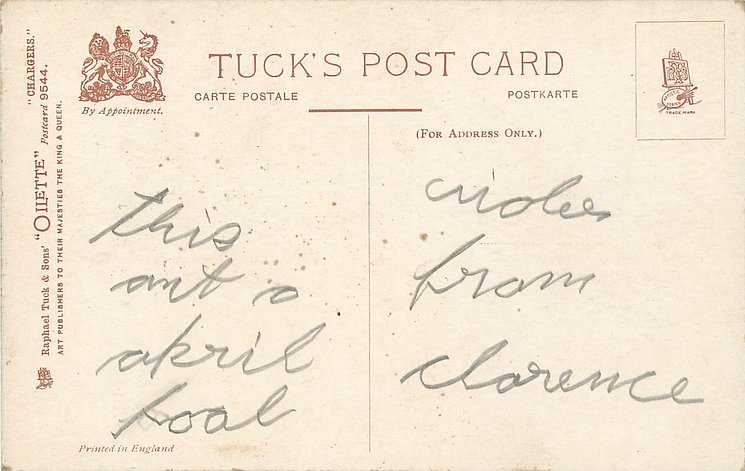 TUCK'S POST CARD
CARTE POSTALE
POSTKARTE
(FOR ADDRESS ONLY.)
By Appointment.
"CHARGERS."
Raphael Tuck & Sons' "OILETTE" Postcard 9544.
ART PUBLISHERS TO THEIR MAJESTIES THE KING & QUEEN.
TRADE MARK
this
ant a
april
foal
from
clarence
Printed in England